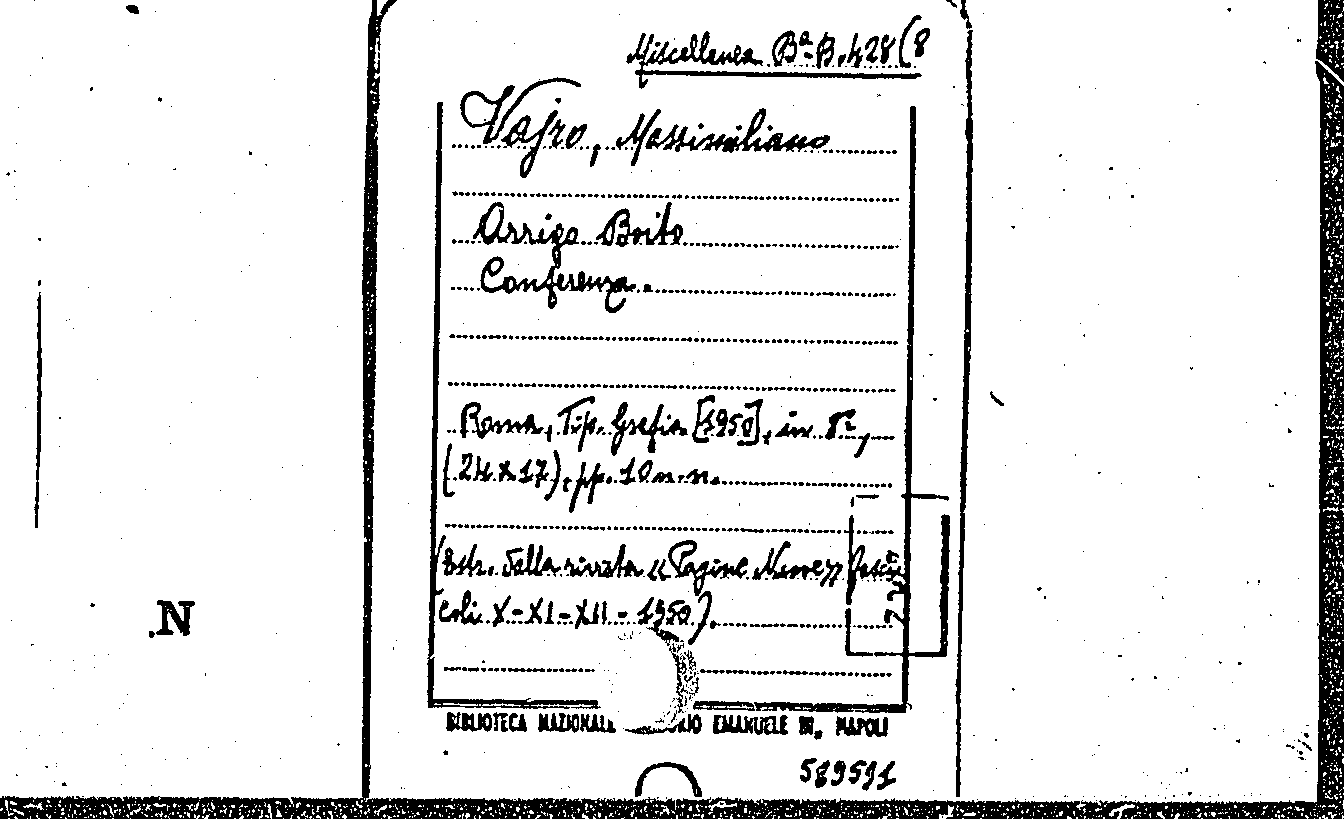 Miscellanea Bª B. 428 (8
Vajro, Massimiliano
Arrigo Boito
Conferenza.
Roma, Tip. Grafia [1950], in 8º,
(24 x 17), pp. 10 n.n.
(Estr. dalla rivista «Pagine Nuove» fasci=
coli X-XI-XII-1950).
N
BIBLIOTECA NAZIONALE EMANUELE III, NAPOLI
589591